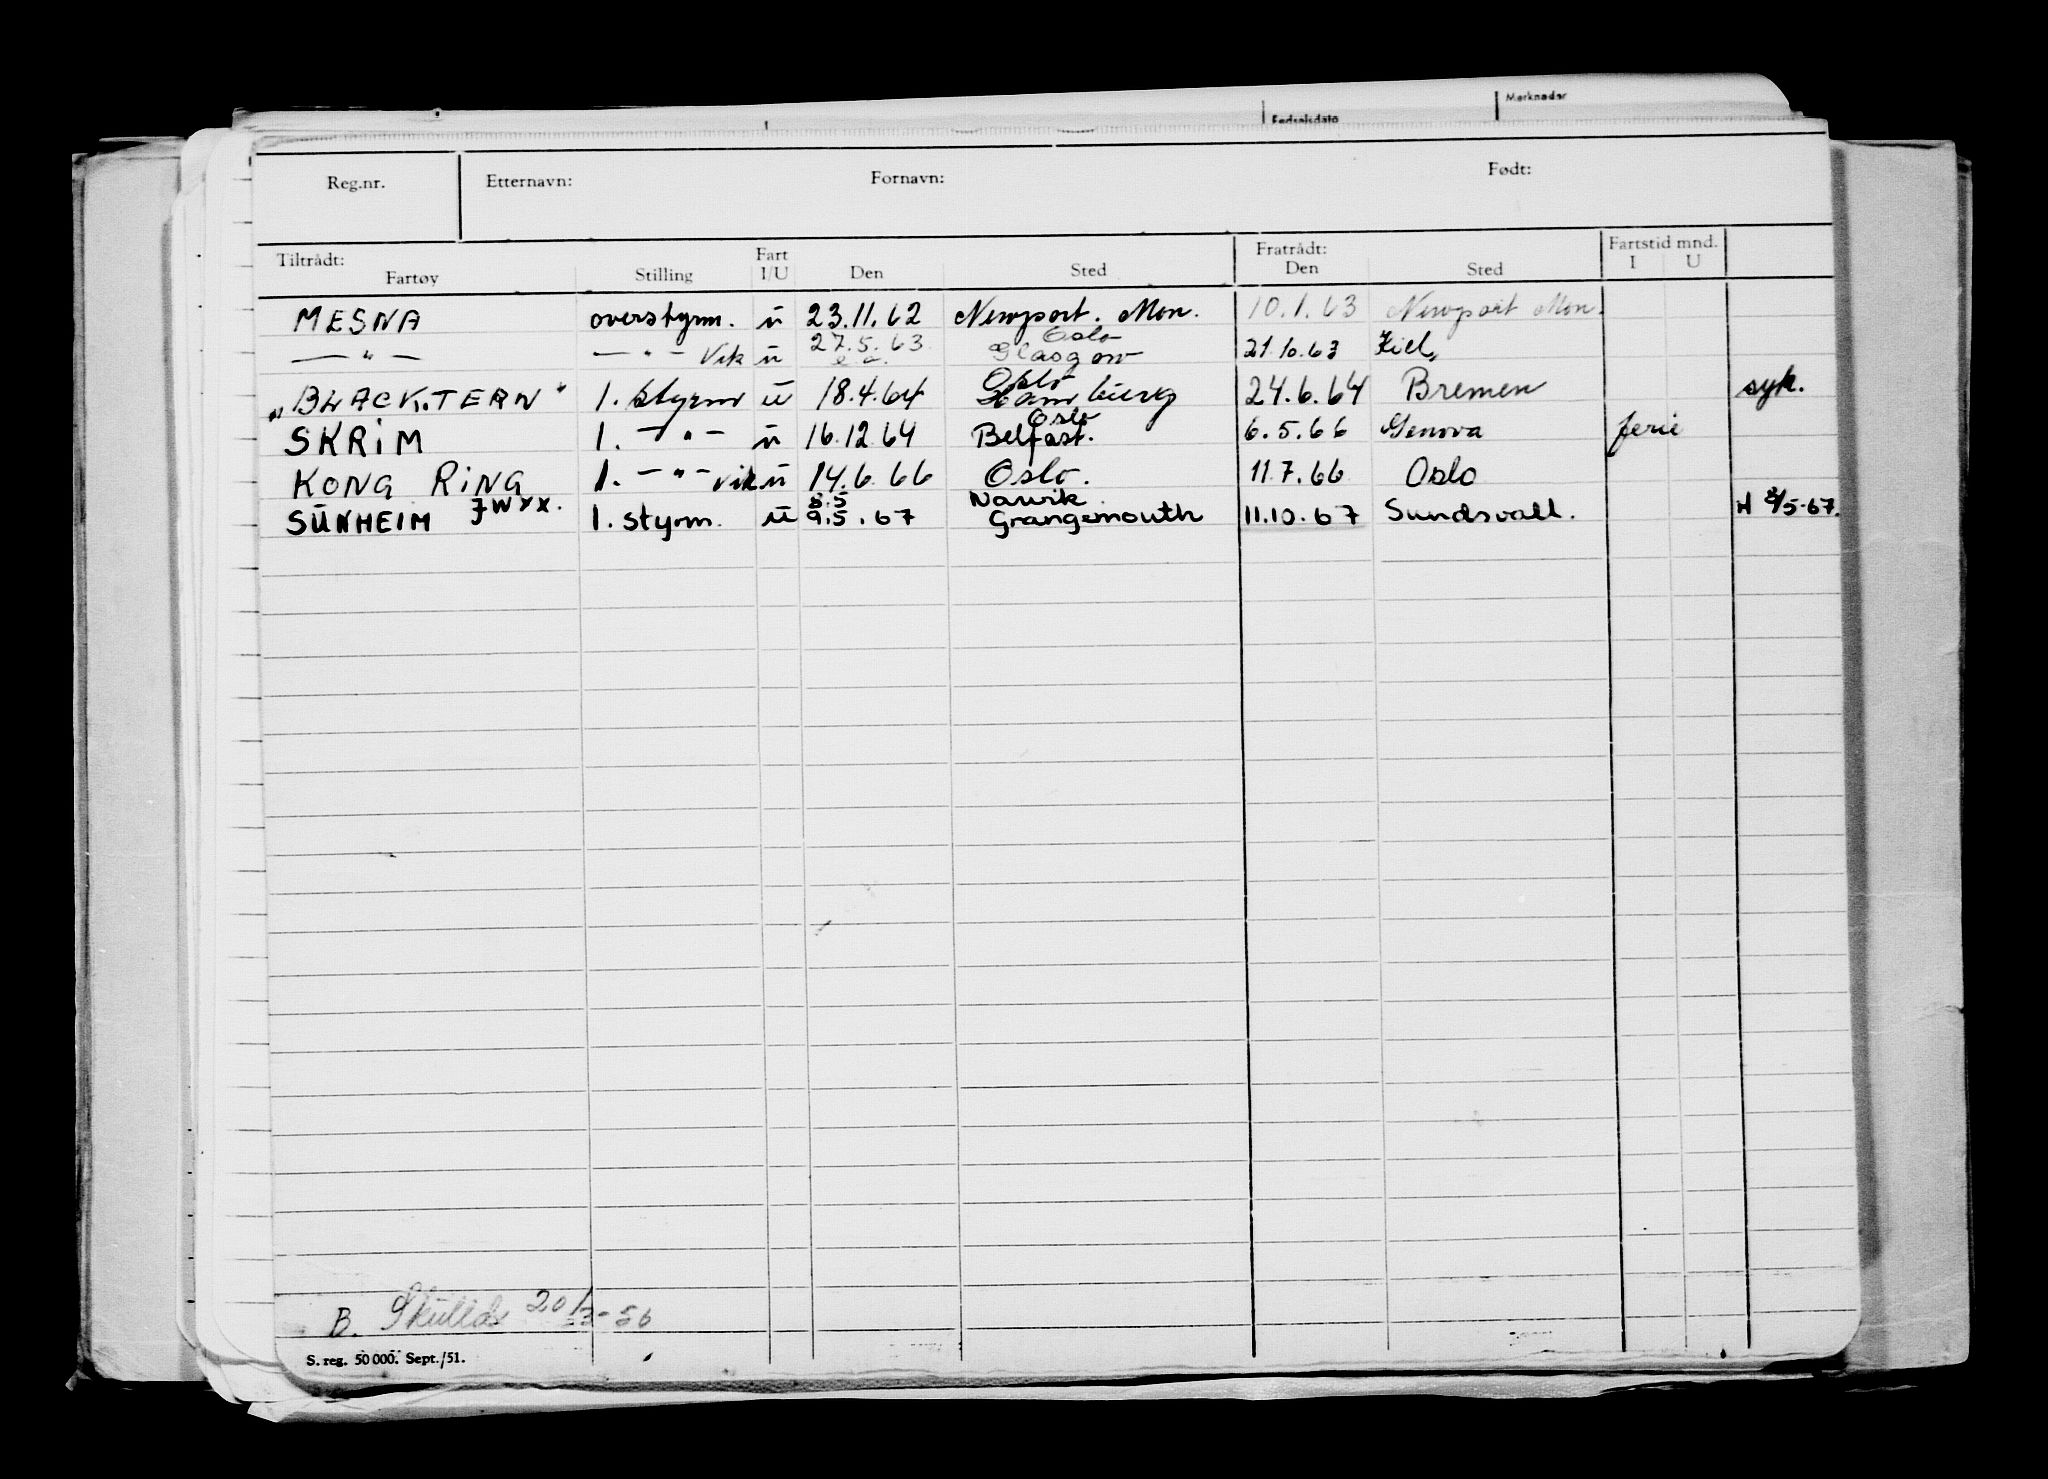 Merknader
Fødselsdato
Reg.nr. Etternavn: Fornavn: Født:
Tiltrådt: Fart Fratrådt: Fartstid mnd.
Fartøy Stilling I/U Den Sted Den Sted I U
MESNA overstyrm. ü 23.11.62 Newport. Mon. 10.1.63 Newport Mon.
Oslo
— " — — " — Vik ü 27.5.63 Glasgow 21.10.63 Kiel,
Oslo
"BLACK.TERN" 1. styrm ü 18.4.64 Hamburg 24.6.64 Bremen syk.
Oslo
SKRIM 1. — " — ü 16.12.64 Belfast. 6.5.66 Genova ferie
KONG RING 1. — " — vik ü 14.6.66 Oslo. 11.7.66 Oslo
8.5 Narvik
SÜNHEIM JWYX. 1. styrm. ü 9.5.67 Grangemouth 11.10.67 Sundsvall. H 8/5-67.
B. 20/3-56
S. reg. 50 000. Sept./51.